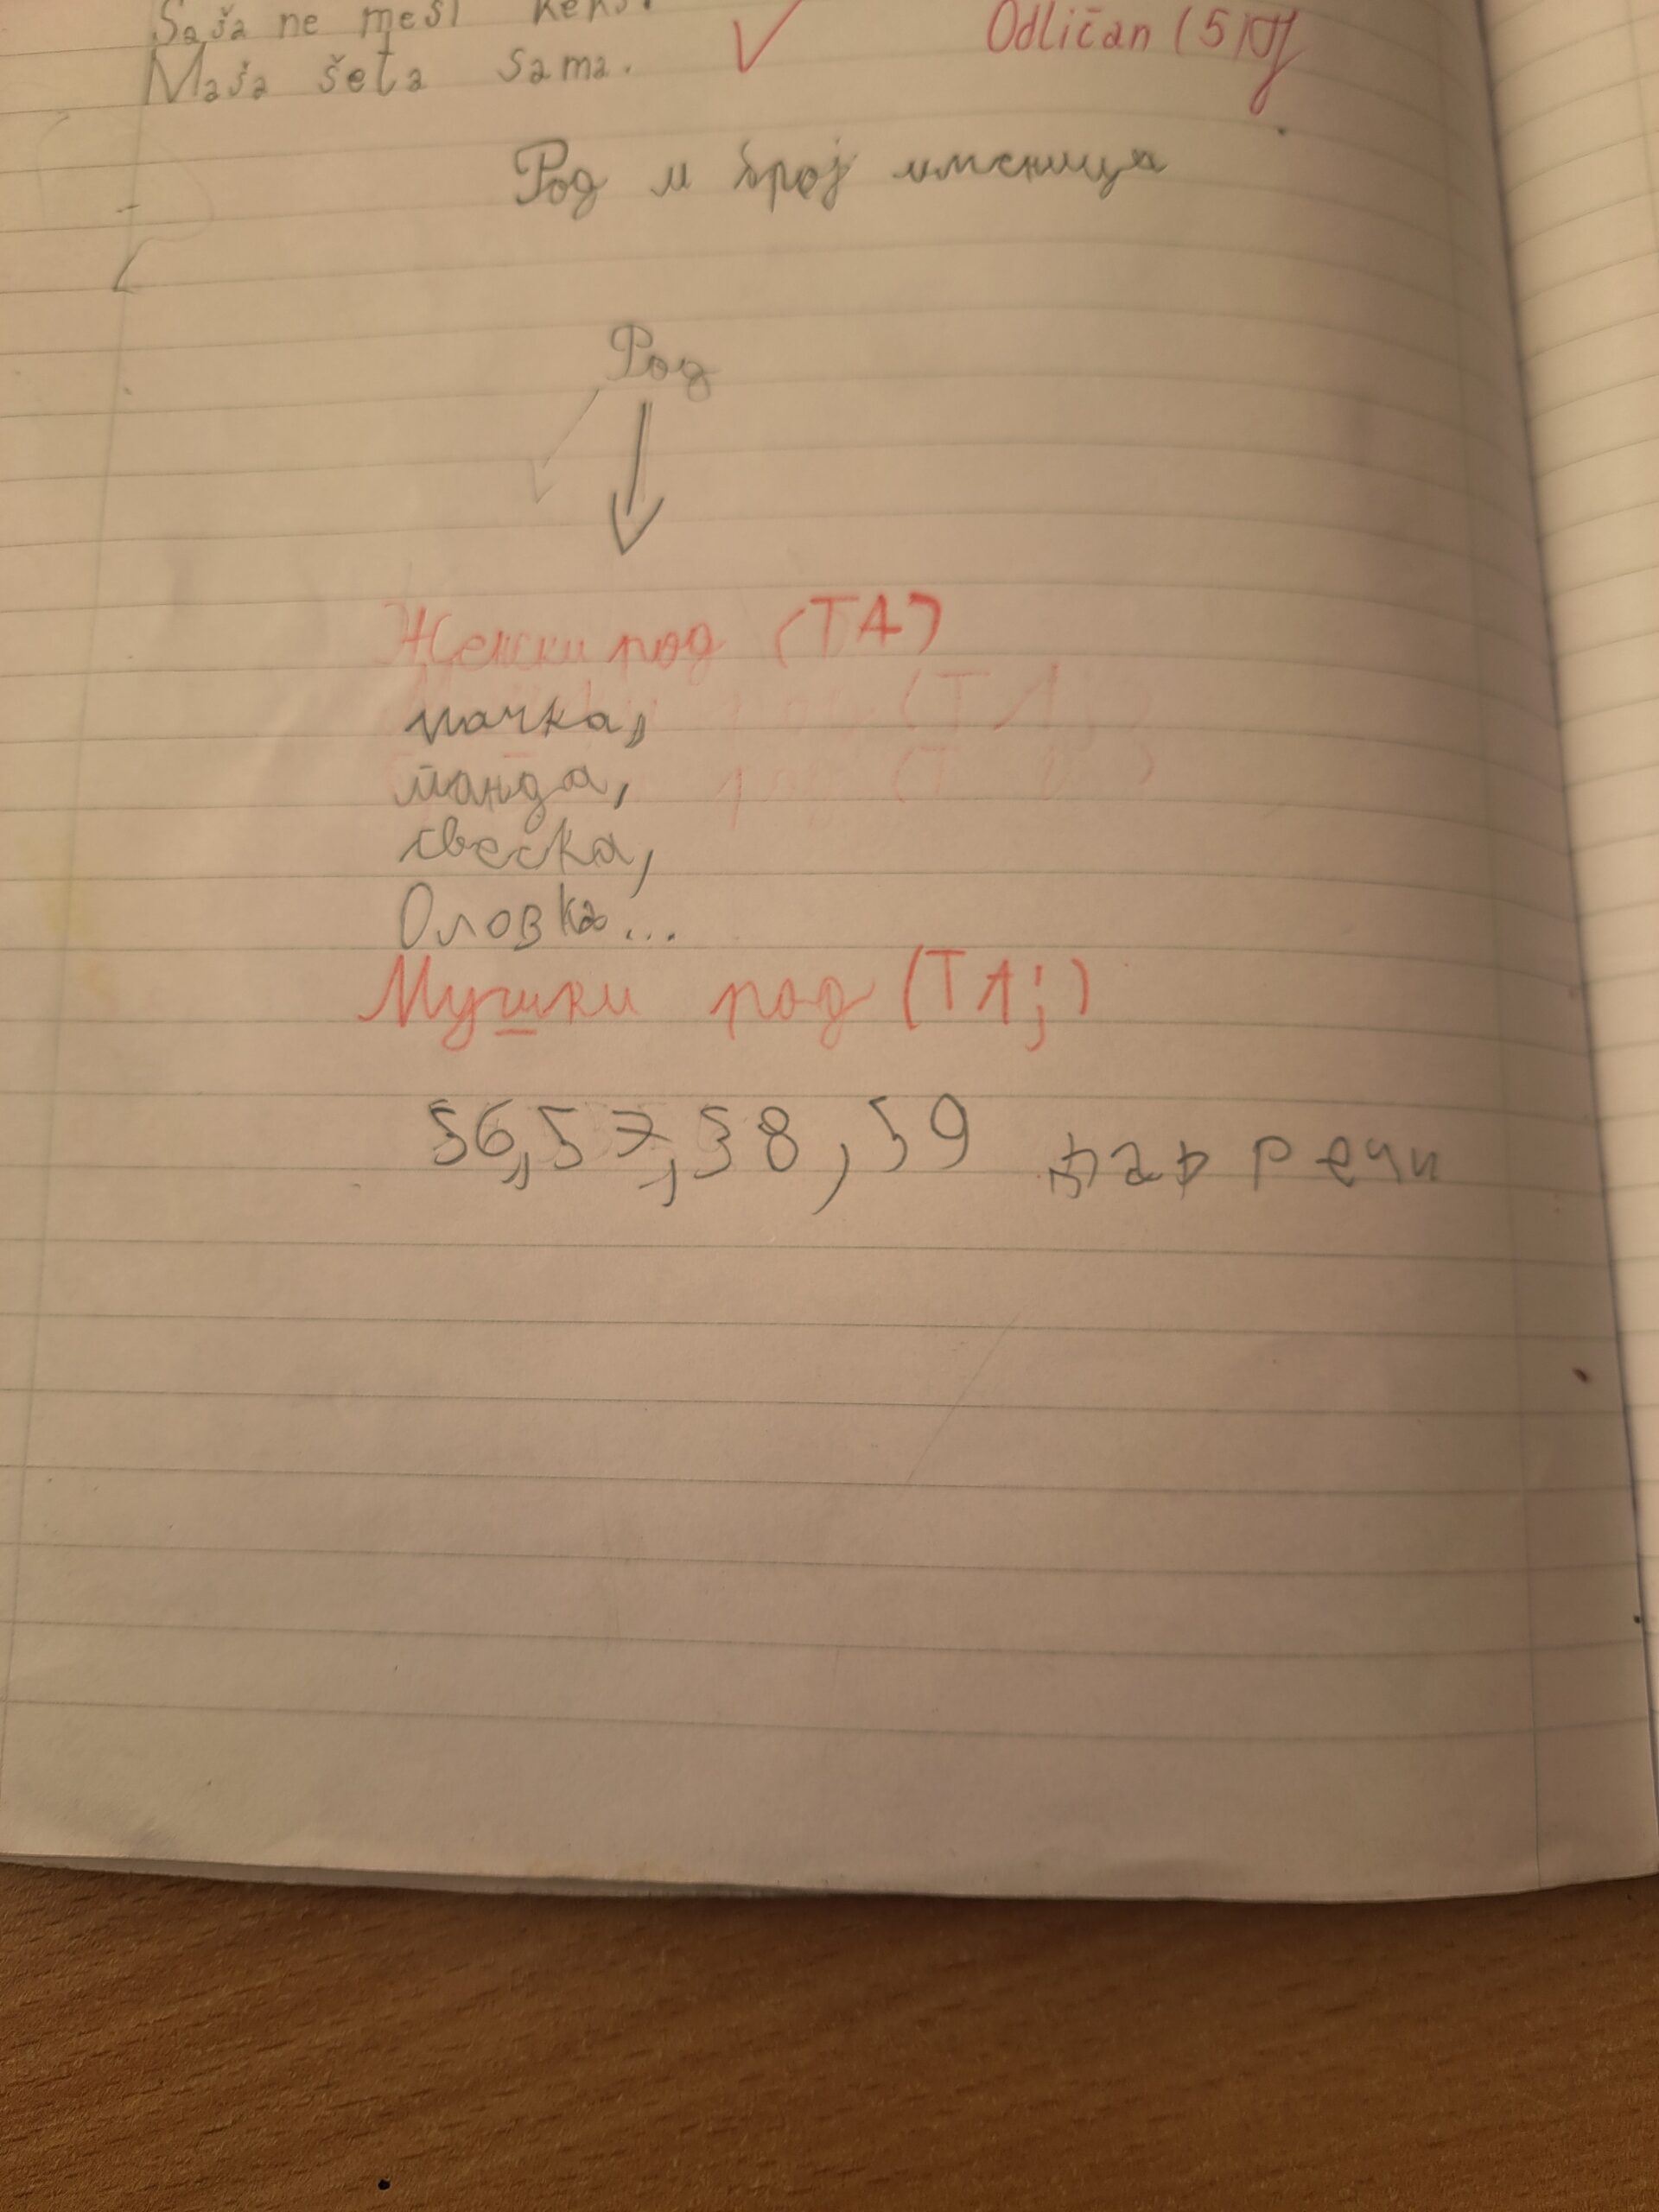 Saša ne mesi keks.
Maša šeta sama.
Odličan (5)
Род и број именица
Род
Женски род (ТА)
мачка,
панда,
свеска,
Оловка...
Мушки род (ТАј)
56, 57, 58, 59 дар речи